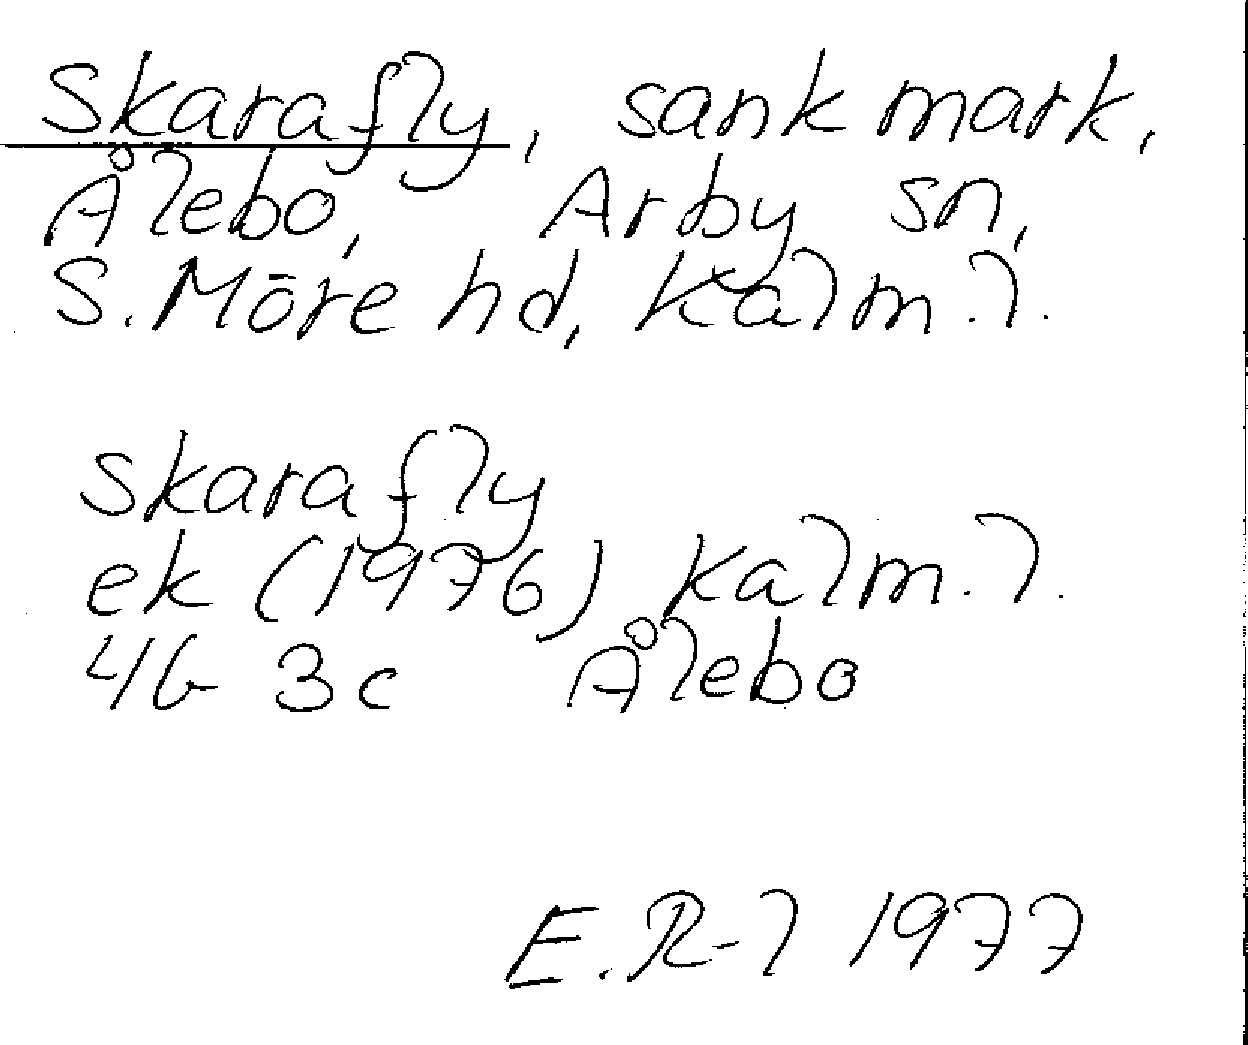 Skarafly, sank mark,
Ålebo, Arby sn,
S. Möre hd, Kalm. l.
Skarafly
ek (1976) Kalm. l.
4G 3c Ålebo
E. R-l 1977